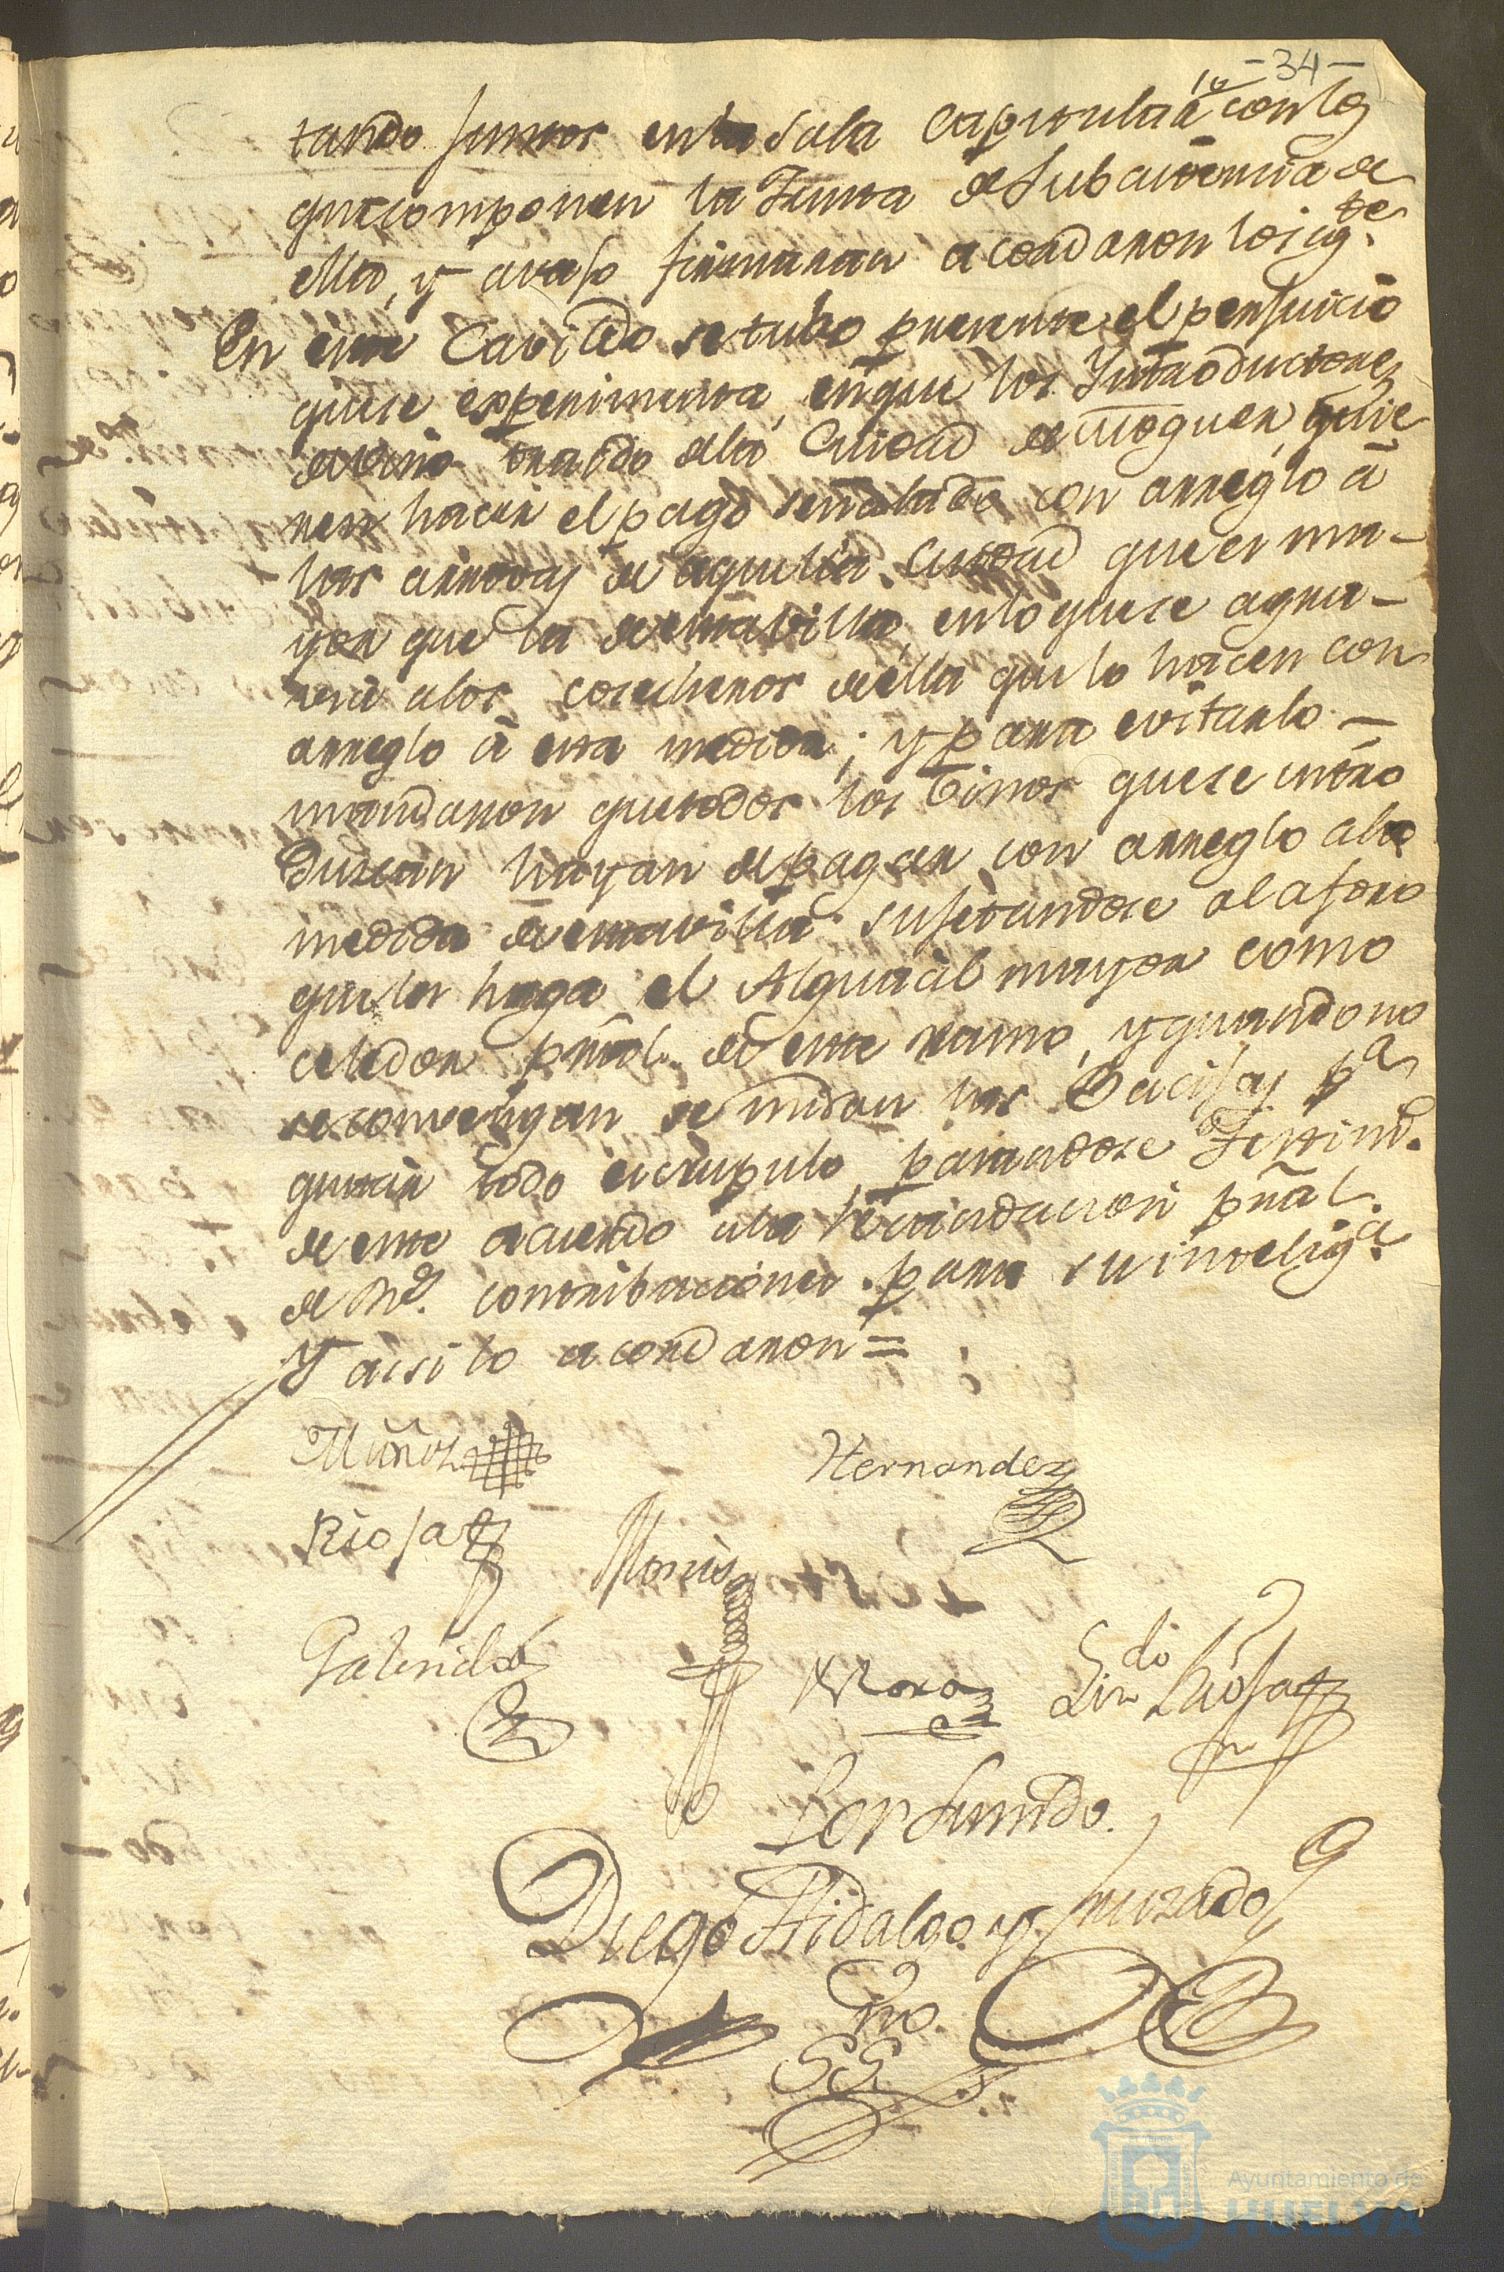 -34-
10
tando juntos en la Sala Capitular con los
que componen la Junta de Subcistencia de
ella, y avajo firmaran acordaron lo sigte.
En este Cavildo se tubo presente el perjuicio
que se experimenta, en que los Yntroductores
de vino traido dela Ciudad de Moguer, quie
ren hacer el pago señalado con arreglo á
las arrovas de aquella Ciudad que es ma-
yor que la de esta villa, en lo que se agra-
via alos cosecheros de ella que lo hacen con
arreglo á esta medida; y para evitarlo -
mandaron que todos los Vinos que se intro
duscan hayan de pagar con arreglo ala
medida de esta villa sujetandose al aforo
que les haga el Alguacil mayor como
celador pral. de este ramo, y quando no
se convengan se midan las Bacijas pa
quitar todo escrupulo, pasandose Testimo.
de este acuerdo ala Recaudacion pral.
de Rs. contribuciones para su inteliga.
Y asi lo acordaron =
Muñoz
Hernandez
Rioja
Garrido
Mora
Sindo Rioja
Por su mdo.
Diego Hidalgo y Cruzado
Sno.
SS
Ayuntamiento de
HUELVA